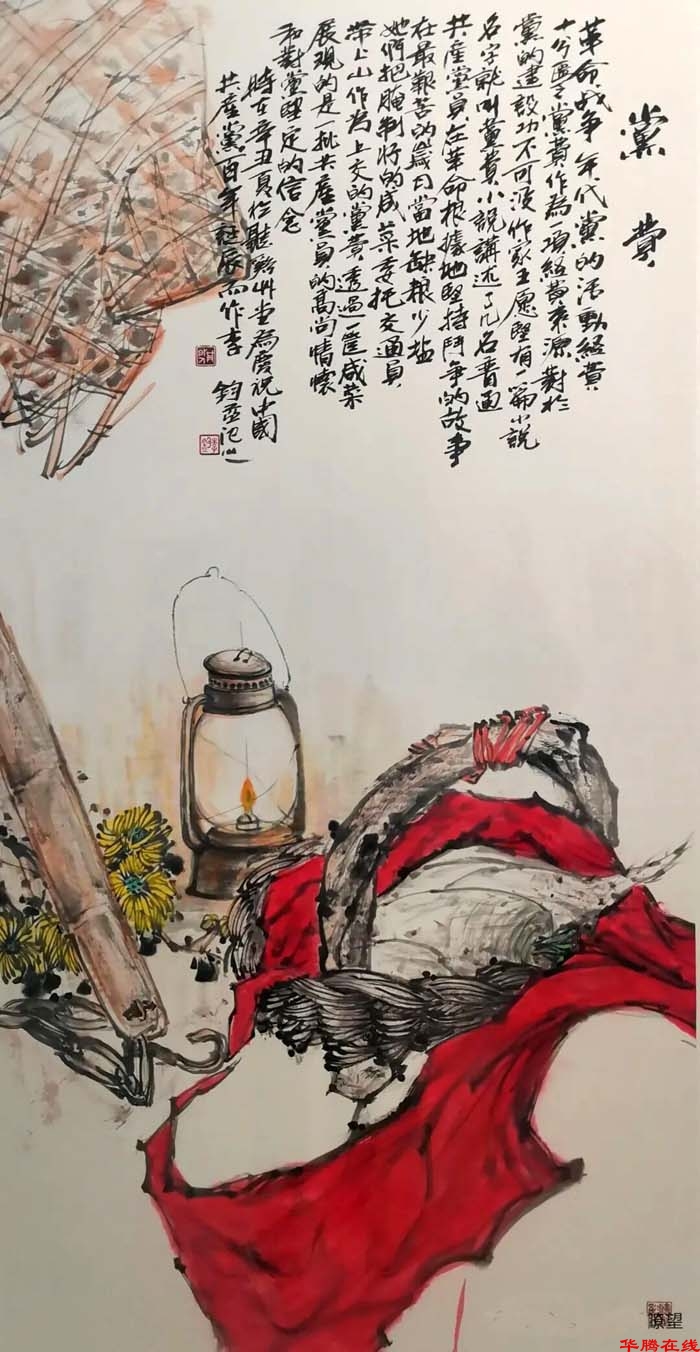 黨費
革命战争年代黨的活動經費
十分匮乏黨費作為一項經費来源對於
黨的建設功不可没作家王愿堅有一篇小説
名字就叫黨費小説講述了几名普通
共産黨員在革命根據地堅持鬥争的故事
在最艱苦的歲月當地缺粮少盐
她們把腌制好的咸菜委托交通員
帶上山作為上交的黨費透過一筐咸菜
展現的是一批共産黨員的高尚情懷
和對黨堅定的信念
時在辛丑夏於聽草堂為慶祝中國
共産黨百年誕辰而作李鈞記
瞭望
华腾在线